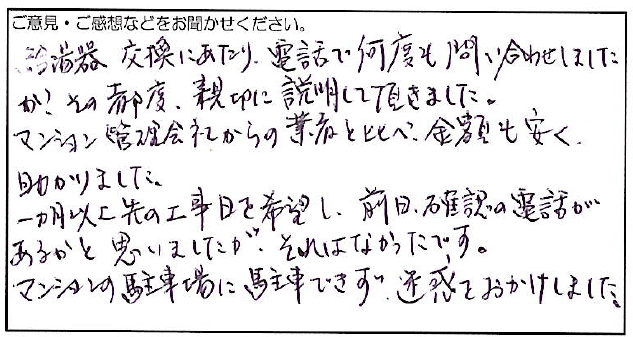 ご意見・ご感想などをお聞かせください。
給湯器 交換にあたり、電話で何度も問い合わせしました
が、その都度、親切に説明して頂きました。
マンション管理会社からの業者とくらべ、金額も安く、
助かりました。
一カ月以上先の工事日を希望し、前日、確認の電話が
あるかと思いましたが、それはなかったです。
マンションの駐車場に駐車できず、迷惑をおかけしました。